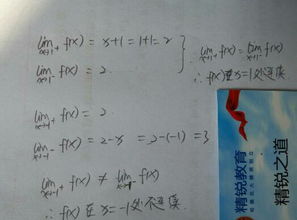 lim x→1+ f(x) = x+1 = 1+1 = 2
lim x→1- f(x) = 2
∴ lim x→1+ f(x) = lim x→1- f(x)
∴ f(x)在x=1处连续
lim x→-1+ f(x) = 2
lim x→-1- f(x) = 2-x = 2-(-1) = 3
lim x→-1+ f(x) ≠ lim x→-1- f(x)
∴ f(x)在x=-1处不连续
精锐教育
精锐之道